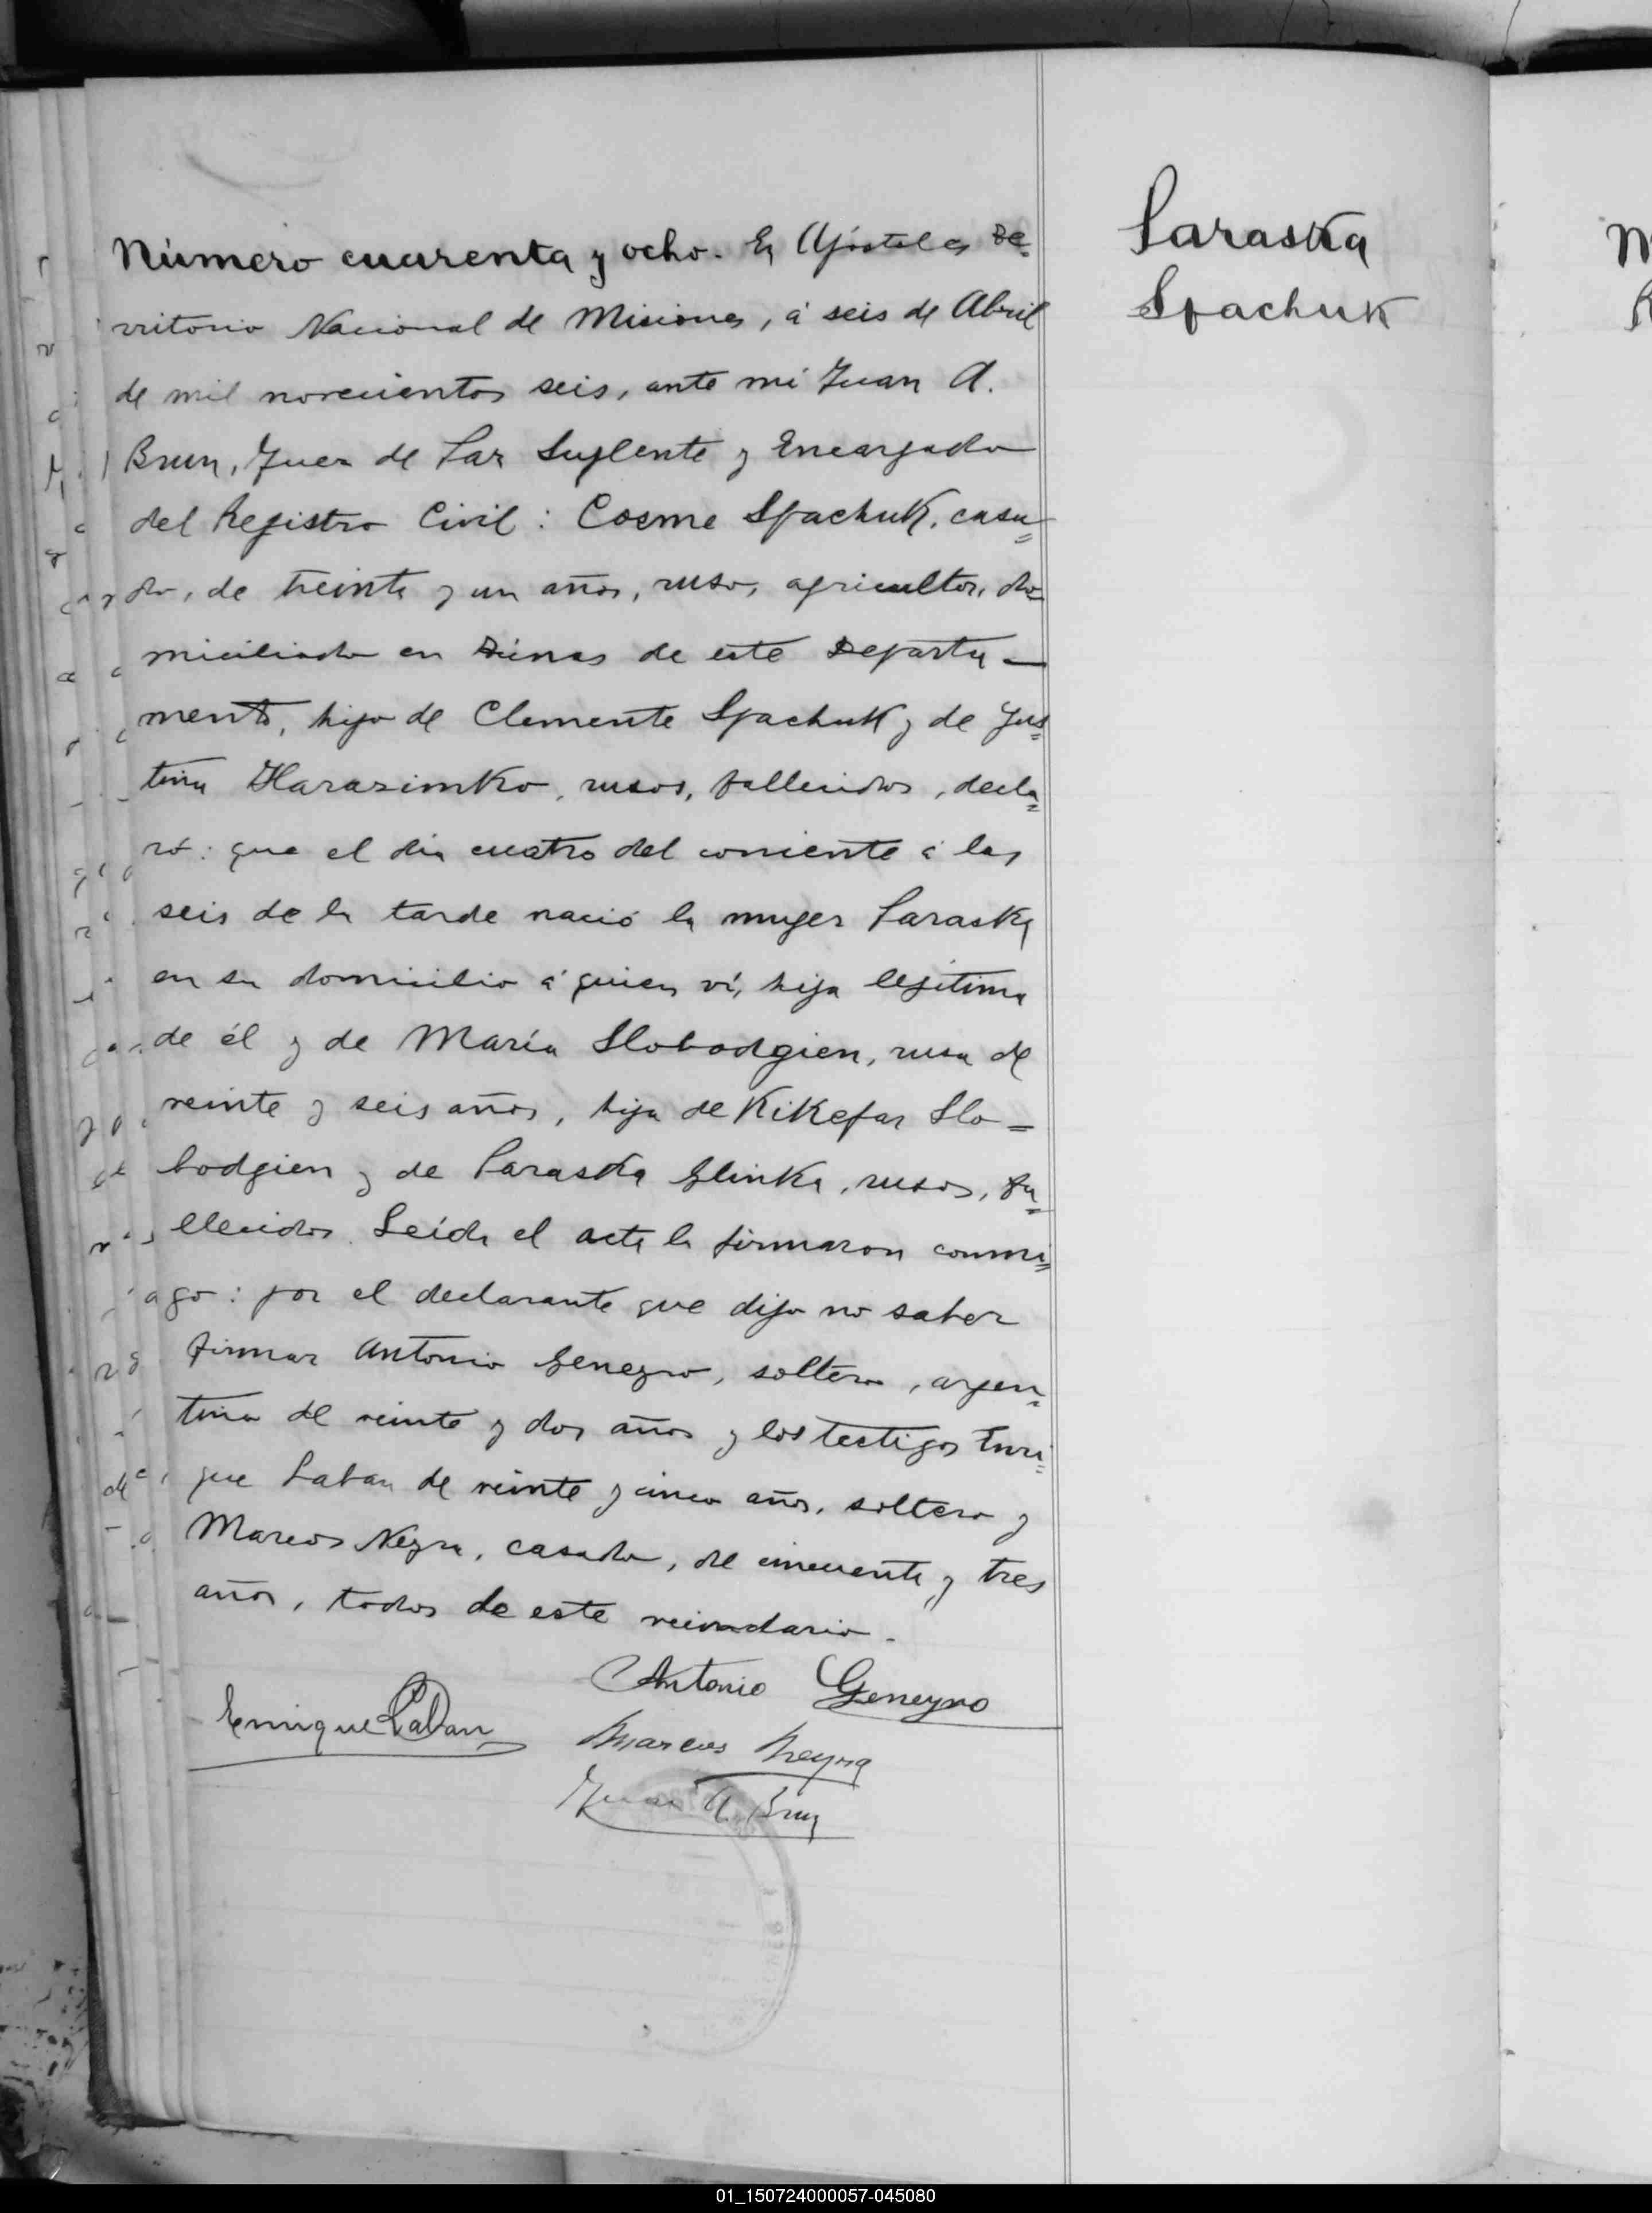 Número cuarenta y ocho. En Apóstoles Te=
rritorio Nacional de Misiones, á seis de Abril
de mil novecientos seis, ante mi Juan A.
Brun, Juez de Paz Suplente y Encargado
del Registro Civil: Cosme Spachuk, casa=
do, de treinta y un años, ruso, agricultor, do=
miciliado en de este Departa-
mento, hijo de Clemente Spachuk y de Jus=
tina Harasimko, rusos, fallecidos, decla=
ró: que el dia cuatro del corriente á las
seis de la tarde nació la muger Paraska
en su domicilio á quien ví, hija legitima
de él y de María Slobodgien, rusa de
veinte y seis años, hija de Kikefar Slo=
bodgien y de Paraska Glinka, rusos, fa=
llecidos. Leida el acta la firmaron conmi=
go: por el declarante que dijo no saber
firmar Antonio Geneyro, soltero, argen=
tino de veinte y dos años y los testigos Enri=
que Laban de veinte y cinco años, soltero y
Marcos Neyra, casado, de cincuenta y tres
años, todos de este vecindario.
Antonio Geneyro
Enrique Laban
Marcos Neyra
Juan A. Brun
Paraska
Spachuk
01_150724000057-045080